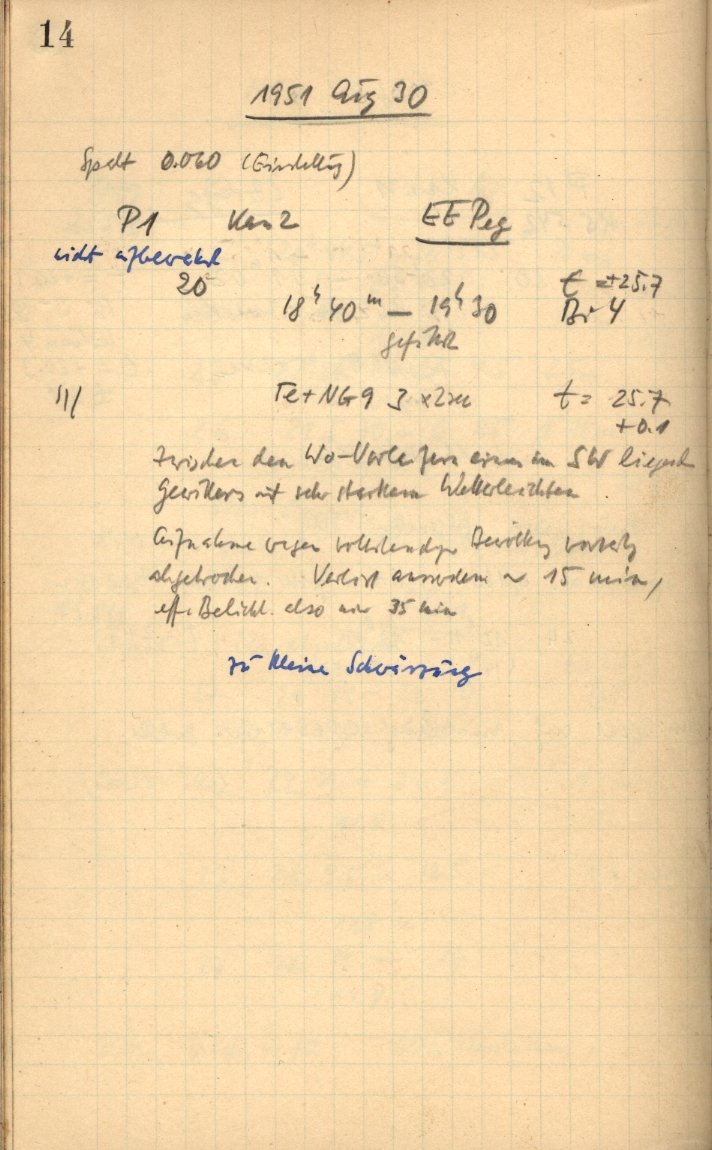 14
1951 Aug 30
Spalt 0.060 (Einstellg)
P1 Kas 2 EE Peg
nicht aufbewahrt
20 t = +25.7
18h 40m — 19h 30 Bi 4
geführt
Fe + NG 9 3 x 2 sec t = 25.7
+0.1
zwischen den Wo-Vorläufern eines im SW liegend
Gewitters mit sehr starkem Wetterleuchten
Aufnahme wegen vollständiger Bewölkg vorzeitig
abgebrochen. Verlust ausserdem ~ 15 min,
eff. Belicht. also nur 35 min
zu kleine Schwärzung